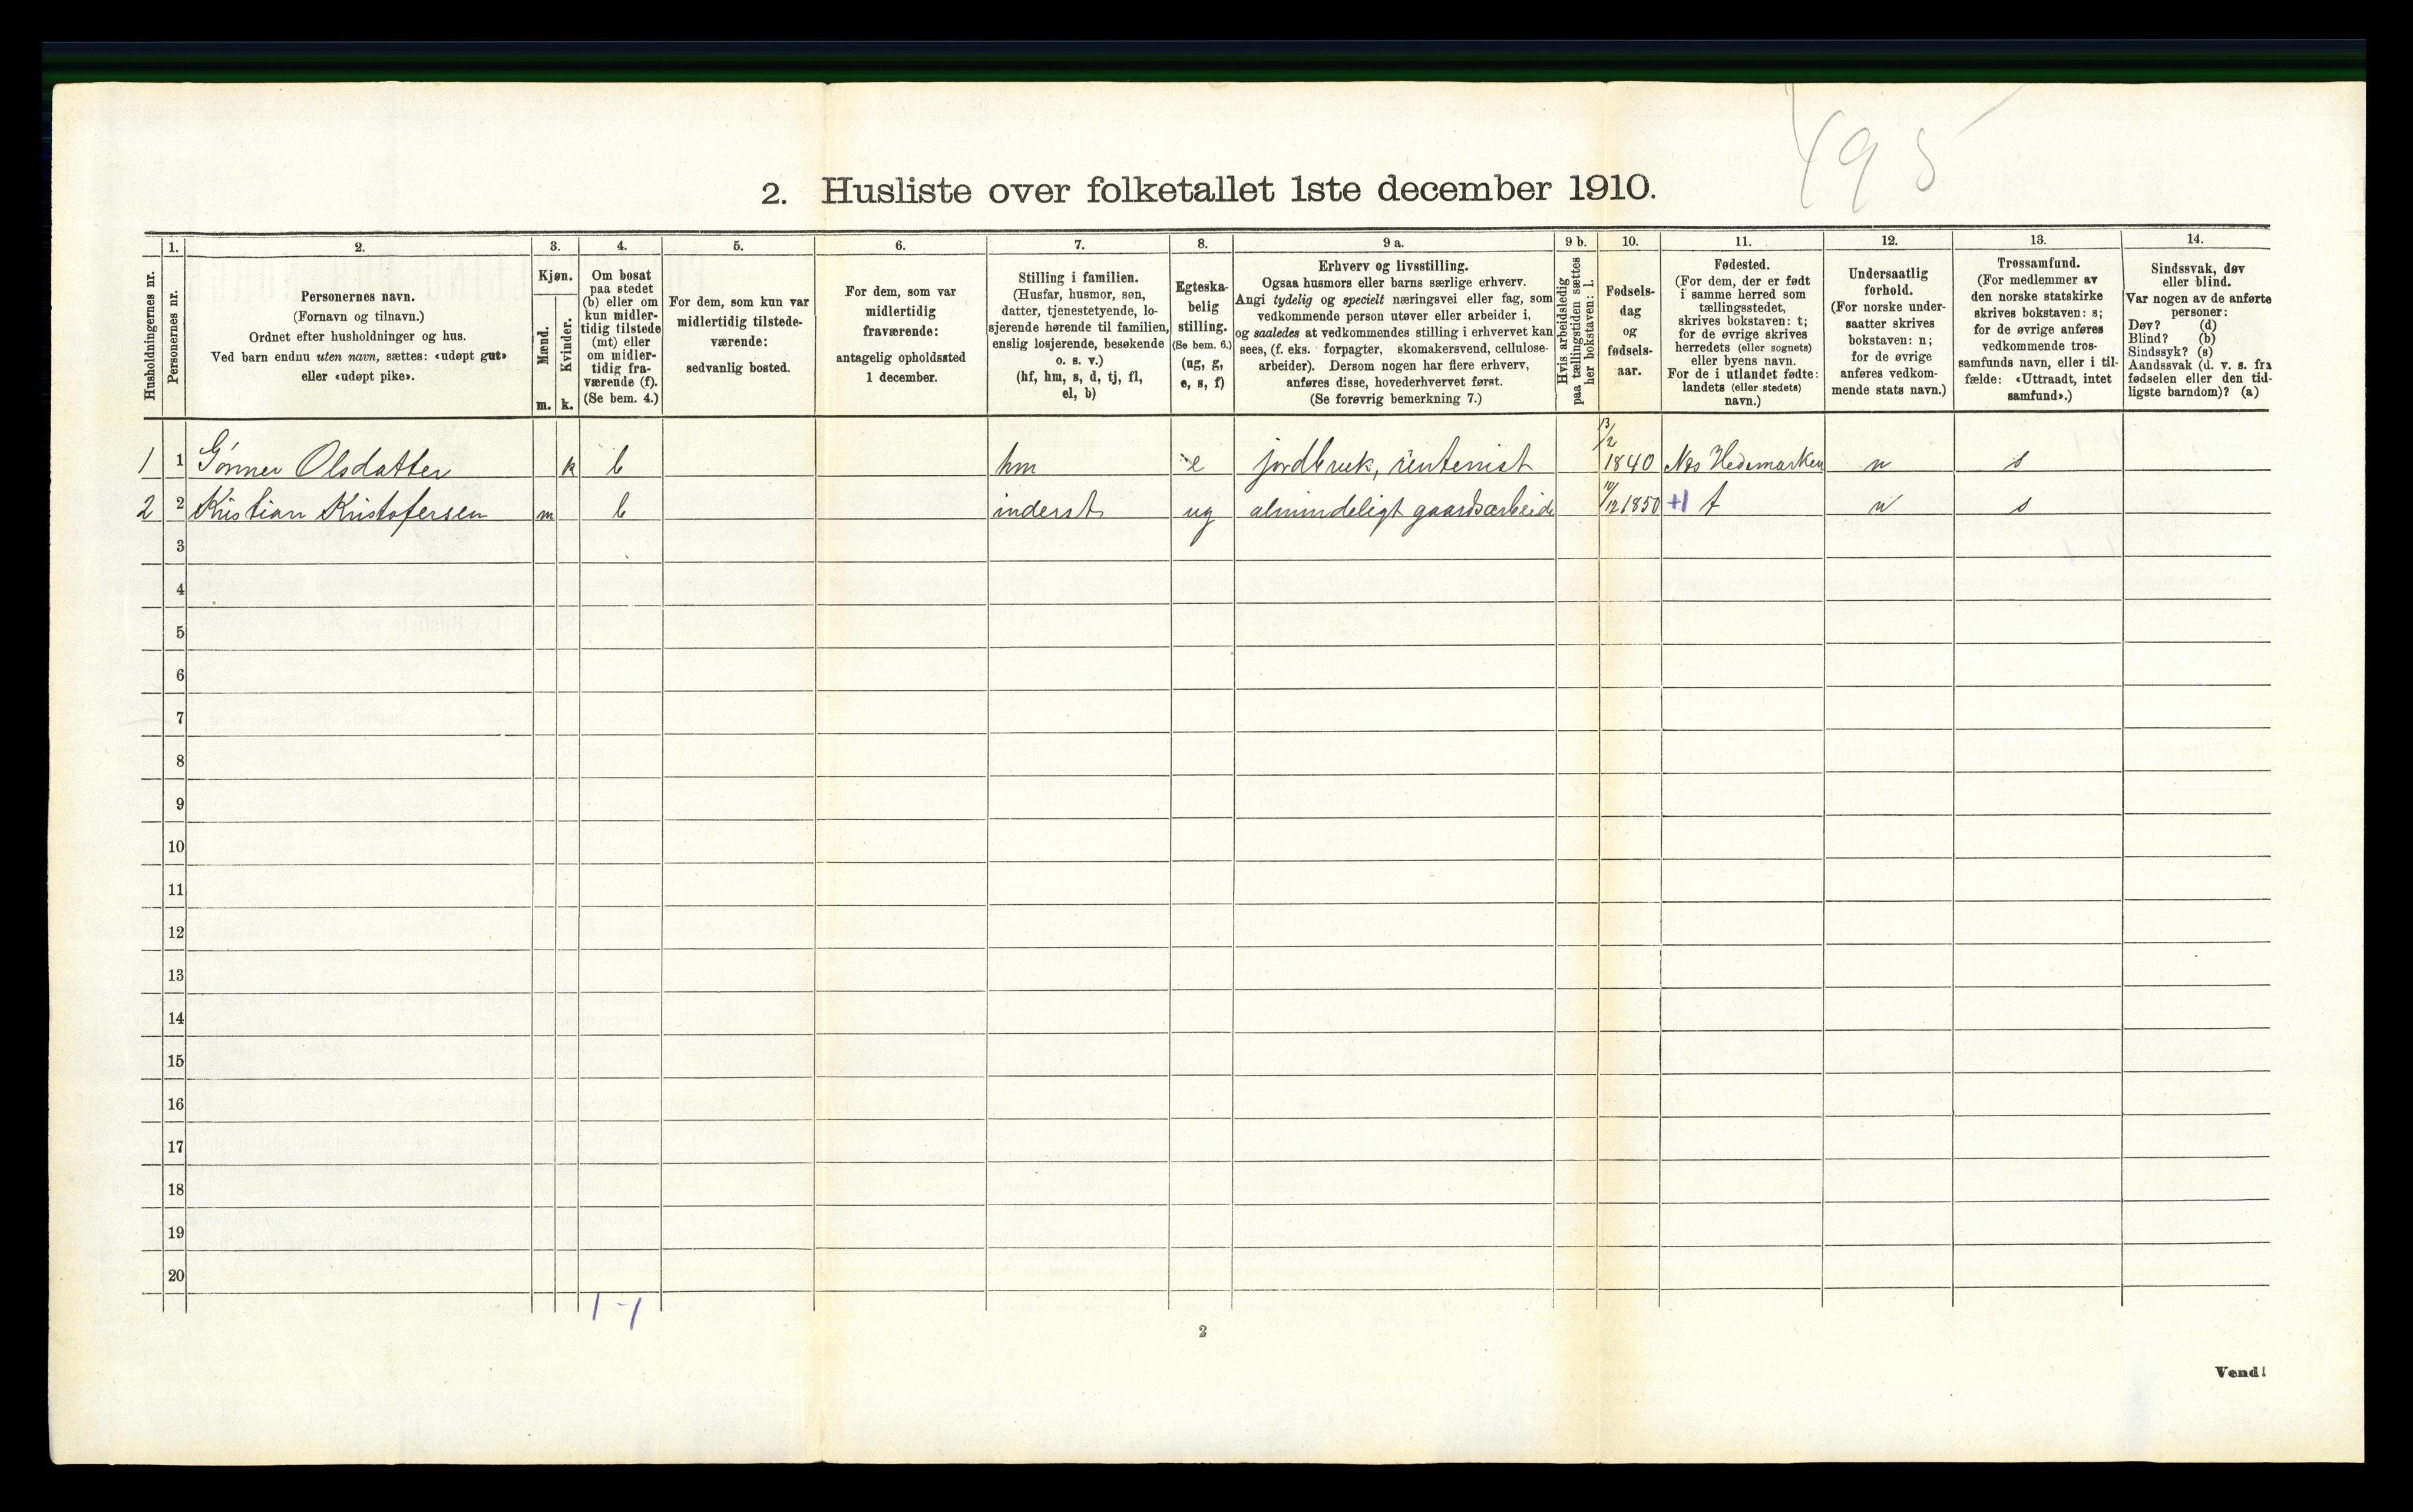 495
2. Husliste over folketallet 1ste december 1910.
Husholdningernes nr.
1.
Personernes nr.
2.
Personernes navn.
(Fornavn og tilnavn.)
Ordnet efter husholdninger og hus.
Ved barn endnu uten navn, sættes: «udøpt gut»
eller «udøpt pike».
3.
Kjøn.
Mænd.
Kvinder.
m. k.
4.
Om bosat
paa stedet
(b) eller om
kun midler-
tidig tilstede
(mt) eller
om midler-
tidig fra-
værende (f).
(Se bem. 4.)
5.
For dem, som kun var
midlertidig tilstede-
værende:
sedvanlig bosted.
6.
For dem, som var
midlertidig
fraværende:
antagelig opholdssted
1 december.
7.
Stilling i familien.
(Husfar, husmor, søn,
datter, tjenestetyende, lo-
sjerende hørende til familien,
enslig losjerende, besøkende
o. s. v.)
(hf, hm, s, d, tj, fl,
el, b)
8.
Egteska-
belig
stilling.
(Se bem. 6.)
(ug, g,
e, s, f)
9 a.
Erhverv og livsstilling.
Ogsaa husmors eller barns særlige erhverv.
Angi tydelig og specielt næringsvei eller fag, som
vedkommende person utøver eller arbeider i,
og saaledes at vedkommendes stilling i erhvervet kan
sees, (f. eks. forpagter, skomakersvend, cellulose-
arbeider). Dersom nogen har flere erhverv,
anføres disse, hovederhvervet først.
(Se forøvrig bemerkning 7.)
9 b.
Hvis arbeidsledig
paa tællingstiden sættes
her bokstaven: l.
10.
Fødsels-
dag
og
fødsels-
aar.
11.
Fødested.
(For dem, der er født
i samme herred som
tællingsstedet,
skrives bokstaven: t;
for de øvrige skrives
herredets (eller sognets)
eller byens navn.
For de i utlandet fødte:
landets (eller stedets)
navn.)
12.
Undersaatlig
forhold.
(For norske under-
saatter skrives
bokstaven: n;
for de øvrige
anføres vedkom-
mende stats navn.)
13.
Trossamfund.
(For medlemmer av
den norske statskirke
skrives bokstaven: s;
for de øvrige anføres
vedkommende tros-
samfunds navn, eller i til-
fælde: «Uttraadt, intet
samfund».)
14.
Sindssvak, døv
eller blind.
Var nogen av de anførte
personer:
Døv? (d)
Blind? (b)
Sindssyk? (s)
Aandssvak (d. v. s. fra
fødselen eller den tid-
ligste barndom)? (a)
1 1 Gønner Olsdatter k b hm e jordbruk, rentenist 13/2 1840 Nes Hedemarken n s
2 2 Kristian Kristofersen m b inderst ug almindeligt gaardsarbeide 10/12 1850 +1 t n s
3
4
5
6
7
8
9
10
11
12
13
14
15
16
17
18
19
20
1 - 1
2
Vend!